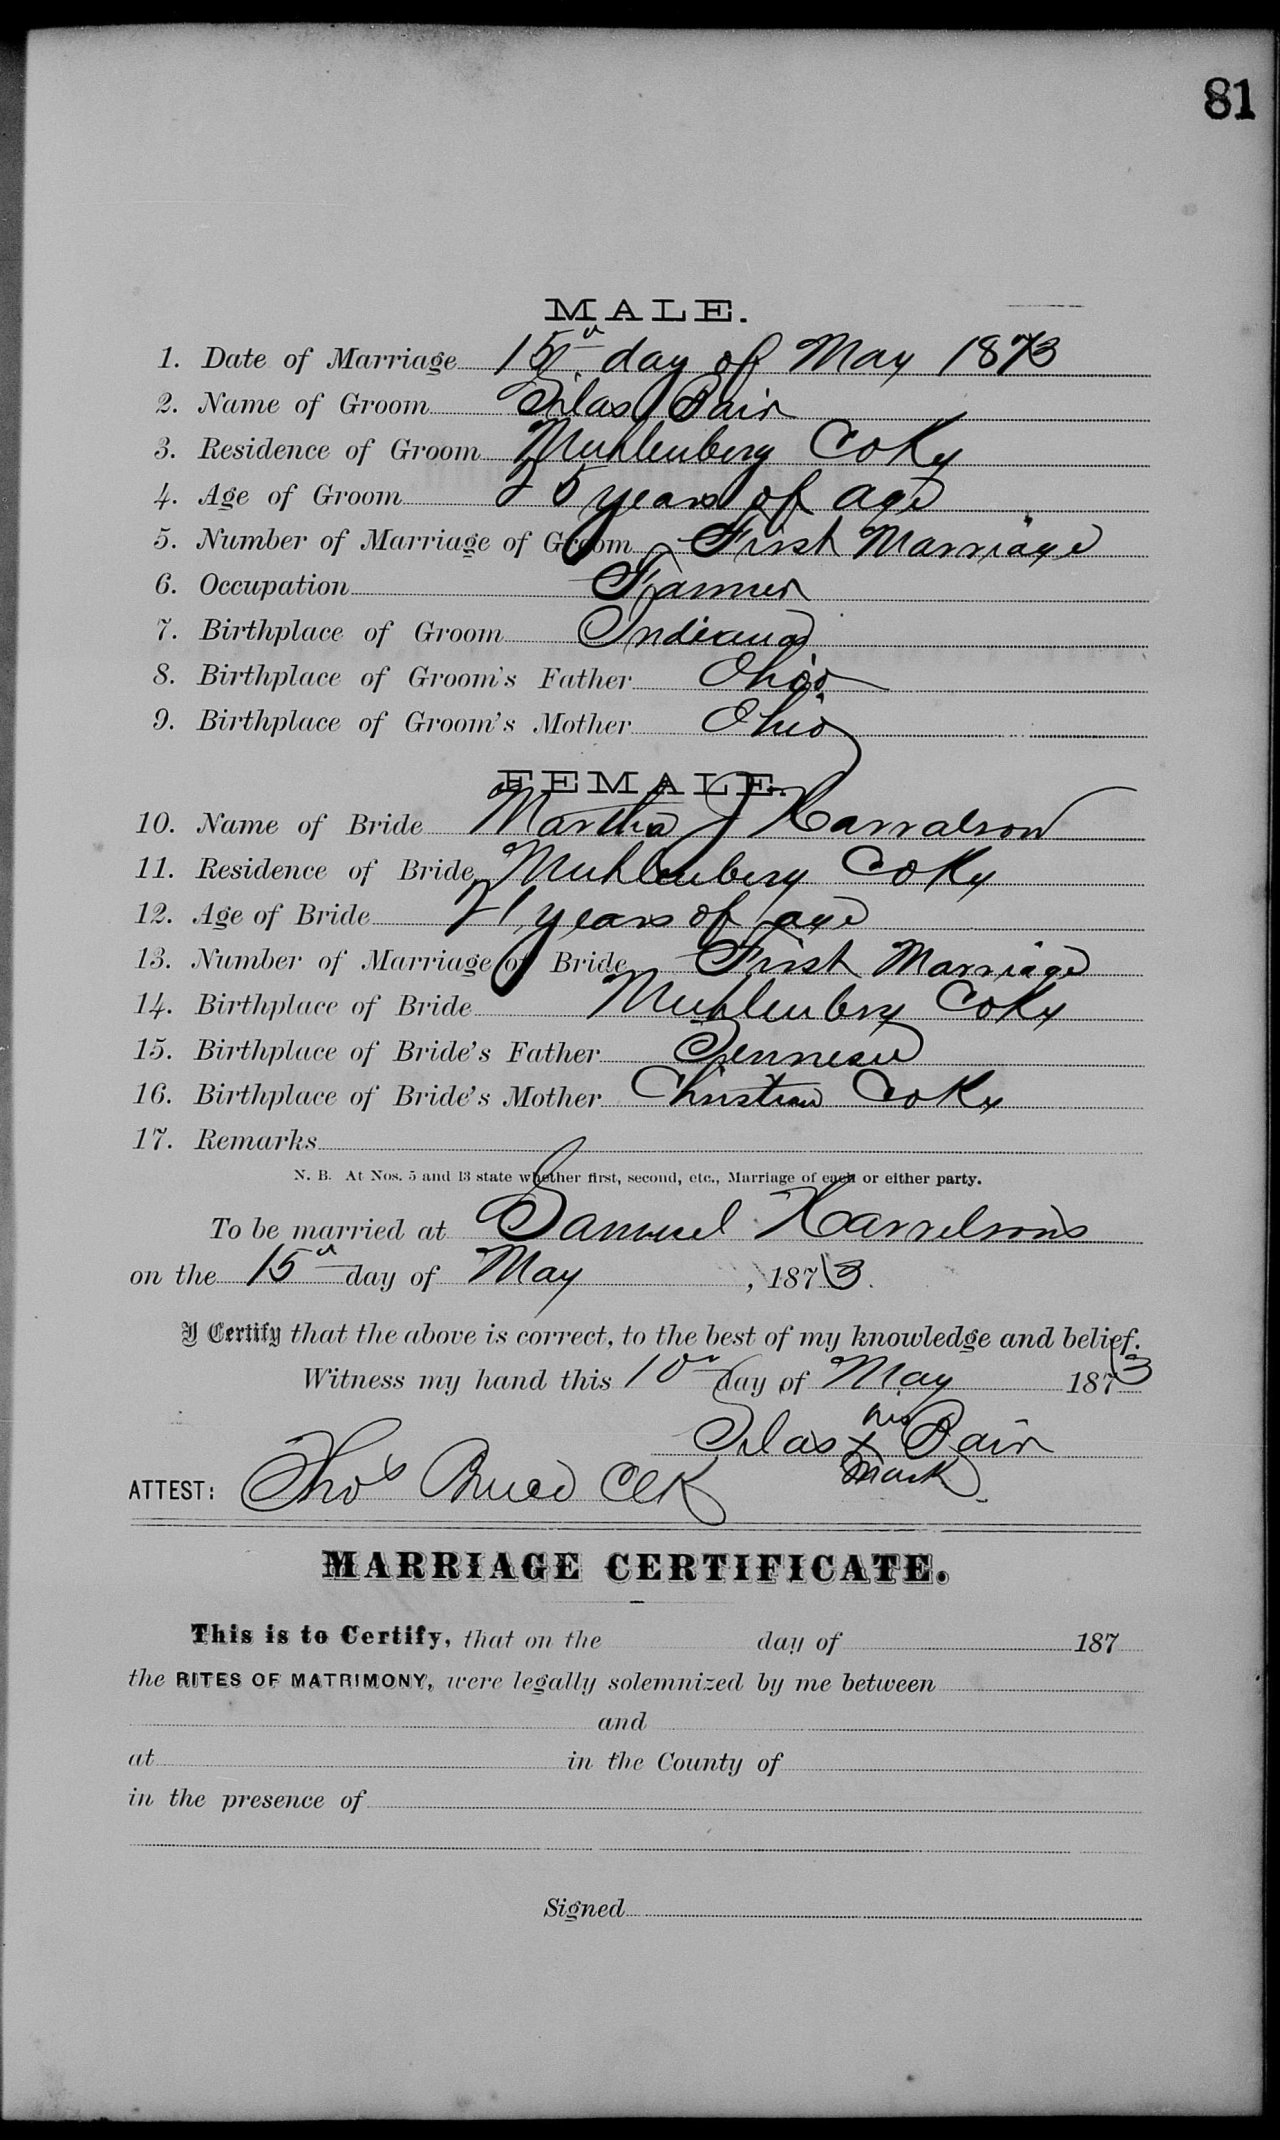 81
MALE.
1. Date of Marriage 15th day of May 1873
2. Name of Groom Silas Pair
3. Residence of Groom Muhlenberg Co Ky
4. Age of Groom 25 years of age
5. Number of Marriage of Groom First Marriage
6. Occupation Farmer
7. Birthplace of Groom Indiana
8. Birthplace of Groom's Father Ohio
9. Birthplace of Groom's Mother Ohio
FEMALE.
10. Name of Bride Martha J Harralson
11. Residence of Bride Muhlenberg Co Ky
12. Age of Bride 21 years of age
13. Number of Marriage of Bride First Marriage
14. Birthplace of Bride Muhlenberg Co Ky
15. Birthplace of Bride's Father Tennessee
16. Birthplace of Bride's Mother Christian Co Ky
17. Remarks
N. B. At Nos. 5 and 13 state whether first, second, etc., Marriage of each or either party.
To be married at Samuel Harrelson's
on the 15th day of May, 1873.
I Certify that the above is correct, to the best of my knowledge and belief.
Witness my hand this 10th day of May 1873
his
Silas x Pair
mark
ATTEST: Thos Bruce Clk
MARRIAGE CERTIFICATE.
This is to Certify, that on the day of 187
the RITES OF MATRIMONY, were legally solemnized by me between
and
at in the County of
in the presence of
Signed